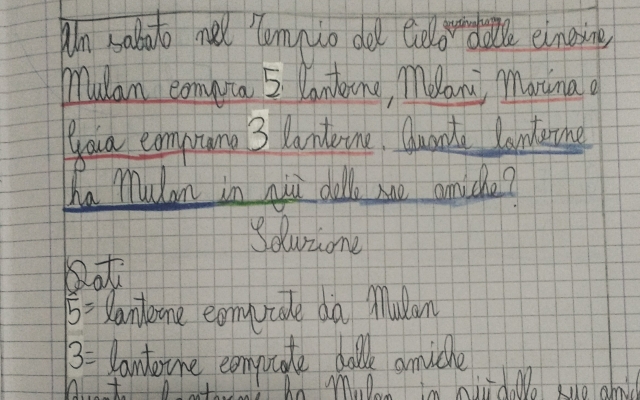 Un sabato nel Tempio del Cielo delle cinesine,
Mulan compra 5 lanterne, Melani, Marina e
Gaia comprano 3 lanterne. Quante lanterne
ha Mulan in più delle sue amiche?
Soluzione
Dati
5= lanterne comprate da Mulan
3= lanterne comprate dalle amiche
Quante lanterne ha Mulan in più delle sue